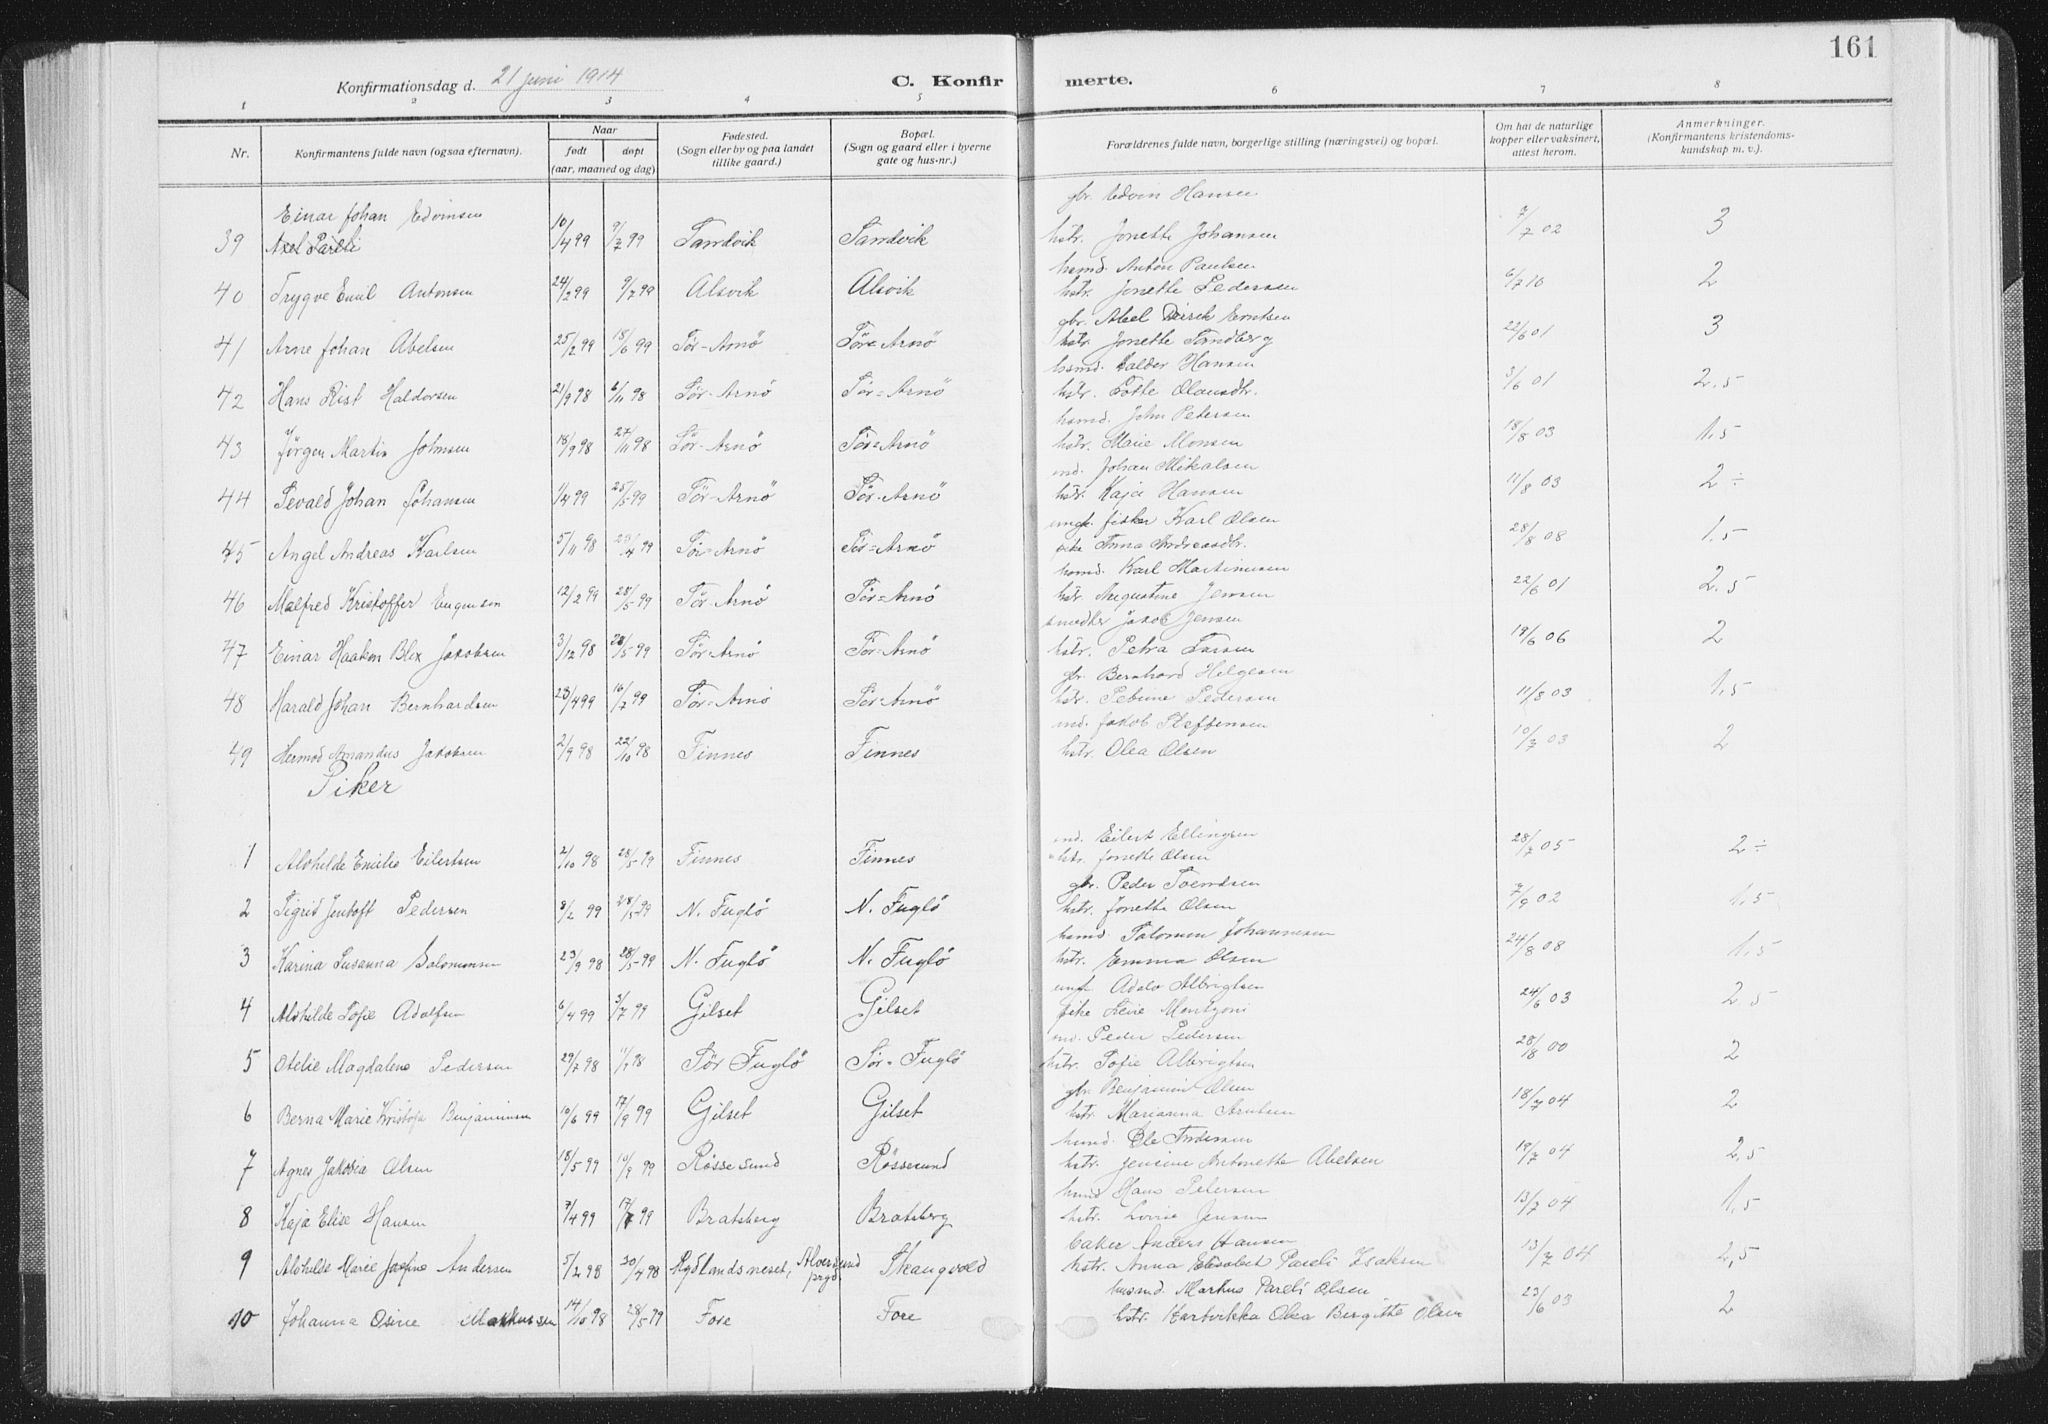 161
Konfirmationsdag d. 21 juni 1914
C. Konfirmerte.
1 2 3 4 5 6 7 8
Nr.
Konfirmantens fulde navn (ogsaa efternavn).
Naar
født døpt
(aar, maaned og dag)
Fødested.
(Sogn eller by og paa landet
tillike gaard.)
Bopæl.
(Sogn og gaard eller i byerne
gate og hus-nr.)
Forældrenes fulde navn, borgerlige stilling (næringsvei) og bopæl.
Om hat de naturlige
kopper eller vaksinert,
attest herom.
Anmerkninger.
(Konfirmantens kristendoms-
kundskap m. v.).
Einar Johan Edvinsen gbr. Edvin Hansen
39 Axel Pareli 10/4 99 9/7 99 Sandvik Sandvik hstr. Jonette Johansen 7/7 02 3
husmd. Anton Paulsen
40 Trygve Emil Antonsen 24/2 99 9/7 99 Alsvik Alsvik hstr. Jonette Pedersen 6/7 10 2
gbr. Abel Dirck Erntsen
41 Arne Johan Abelsen 25/2 99 18/6 99 Sør-Arnö Sør-Arnö hstr. Jonette Sandberg 22/6 01 3
husmd. Haldor Hansen
42 Hans Rist Haldorsen 21/9 98 6/11 98 Sør-Arnö Sør-Arnö hstr. Lotte Olausdtr. 3/6 01 2,5
husmd. John Petersen
43 Jørgen Martin Johnsen 18/9 98 27/11 98 Sör-Arnö Sör-Arnö hstr. Marie Monsen 18/8 03 1,5
ind. Johan Mikalsen
44 Sevald Johan Johansen 1/4 99 25/5 99 Sör-Arnö Sör-Arnö hstr. Kaja Hansen 11/8 03 2 ÷
ungk. fisker Karl Olsen
45 Angel Andreas Karlsen 5/11 98 23/4 99 Sör-Arnö Sör-Arnö pike Anna Andreasdtr. 28/8 08 1,5
husmd. Karl Martinusen
46 Malfred Kristoffer Eugensen 12/2 99 28/5 99 Sör-Arnö Sör-Arnö hstr. Augustine Jensen 22/6 01 2,5
snedker Jakob Jensen
47 Einar Haakon Blix Jakobsen 3/12 98 28/5 99 Sör-Arnö Sör-Arnö hstr. Petra Larsen 19/6 06 2
gbr. Bernhard Helgesen
48 Harald Johan Bernhardsen 23/4 99 16/7 99 Sør-Arnö Sør-Arnö hstr. Petrine Pedersen 11/8 03 1,5
ind. Jakob Steffensen
49 Hermod Amandus Jakobsen 2/9 98 22/10 98 Finnes Finnes hstr. Olea Olsen 10/7 03 2
Piker
ind. Eilert Ellingsen
1 Alvhilde Emilie Eilertsen 2/10 98 28/5 99 Finnes Finnes hstr. Jonette Olsen 28/7 05 2 ÷
gbr. Peder Svendsen
2 Sigrid Jentoft Pedersen 8/2 99 28/5 99 N. Fuglö N. Fuglö hstr. Jonette Olsen 7/9 02 1,5
husmd. Salomon Johannesen
3 Karina Susanna Salomonsen 23/9 98 28/5 99 N. Fuglö N. Fuglö hstr. Emma Olsen 24/8 08 1,5
ungk. Adolv Albrigtsen
4 Alvhilde Sofie Adolfsen 6/4 99 3/7 99 Gilset Gilset pike Lene Mentzoni 24/6 03 2,5
ind. Peder Pedersen
5 Otelie Magdalene Pedersen 29/7 98 11/9 98 Sör Fuglö Sör-Fuglö hstr. Sofie Albrigtsen 28/8 00 2
gbr. Benjamin Olsen
6 Berna Marie Kristofa Benjaminsen 10/6 99 17/9 99 Gilset Gilset hstr. Marianna Arntsen 18/7 04 2
husmd. Ole Andersen
7 Agnes Jakobia Olsen 18/5 99 10/9 99 Røssesund Røssesund hstr. Jensine Antonette Abelsen 19/7 04 2,5
husmd. Hans Petersen
8 Kaja Elise Hansen 7/4 99 17/7 99 Bratsberg Bratsberg hstr. Lovise Jensen 13/7 04 1,5
baker Anders Hansen
9 Alvhilde Marie Josefine Andersen 5/2 98 30/4 98 Rydlandsneset, Alversund prgd. Skaugvold hstr. Anna Elisabet Pareli Isaksen 13/7 04 2,5
husmd. Markus Pareli Olsen
10 Johanna Osine Markussen 14/10 98 28/5 99 Fore Fore hstr. Hartvikka Olea Birgitte Olsen 23/6 03 2